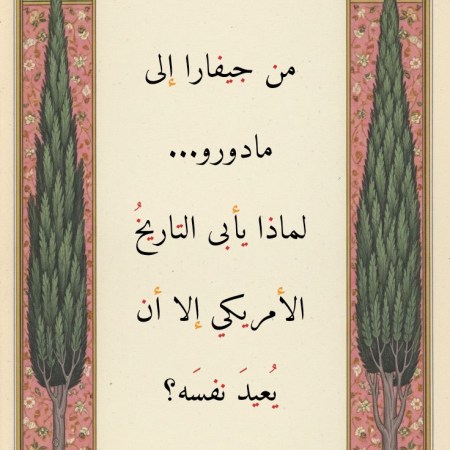 من جيفارا إلى
مادورو...
لماذا يأبى التاريخُ
الأمريكي إلا أن
يُعيدَ نفسَه؟